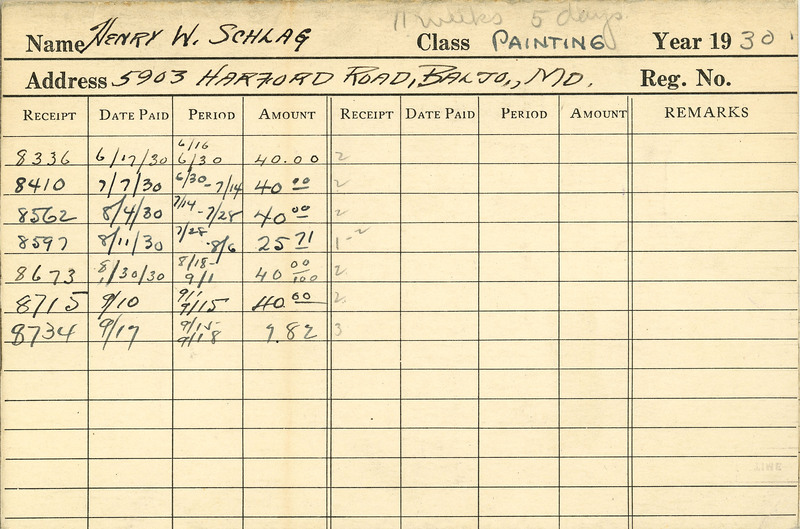 11 weeks 5 days
Name HENRY W. SCHLAG Class PAINTING Year 1930
Address 5903 HARFORD ROAD, BALTO., MD. Reg. No.
RECEIPT DATE PAID PERIOD AMOUNT RECEIPT DATE PAID PERIOD AMOUNT REMARKS
6/16
8336 6/17/30 6/30 40.00 2
8410 7/7/30 6/30-7/14 40 00 2
8562 8/4/30 7/14-7/28 40 00 2
8597 8/11/30 7/28-8/6 25 71 1-2
8673 8/30/30 8/18-9/1 40 00/100 2
8715 9/10 9/1-9/15 40 00 2
8734 9/17 9/15-9/18 9.82 3